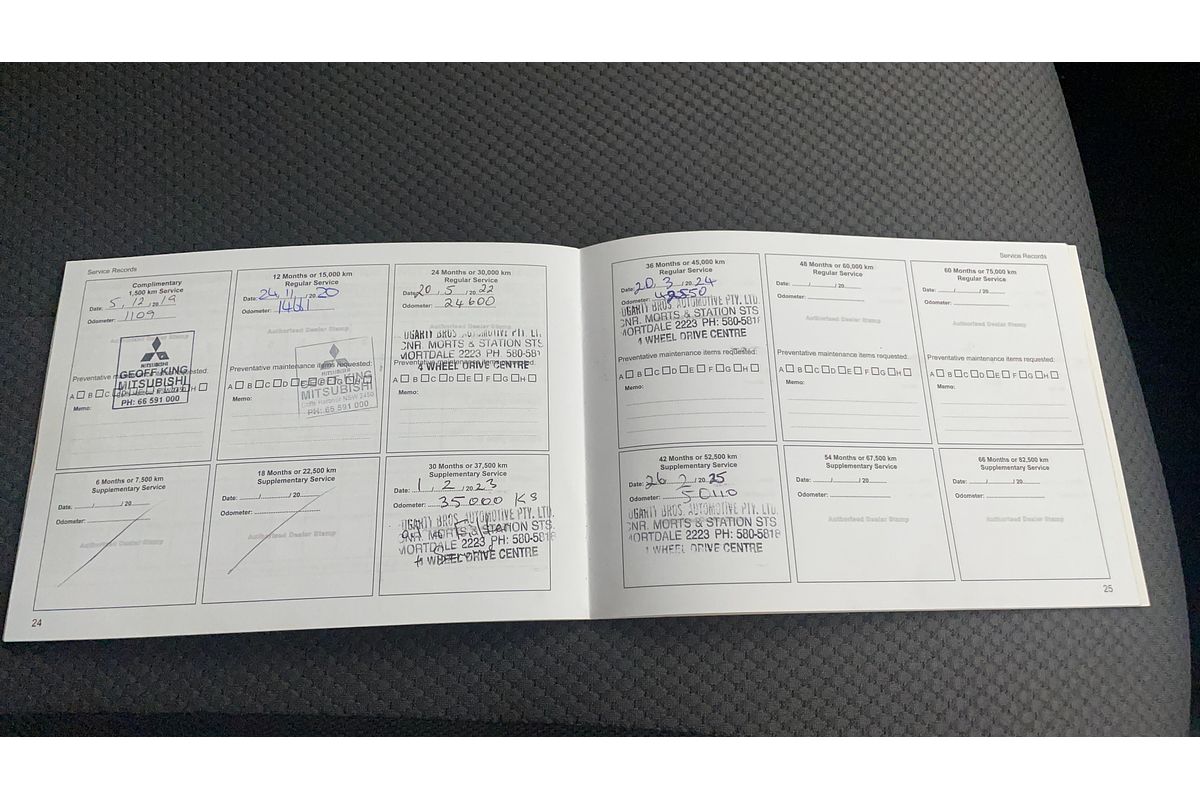 Service Records
Complimentary
1,500 km Service
Date: 5, 12, 2019
Odometer: 1109
MITSUBISHI
GEOFF KING
MITSUBISHI
PH: 66 591 000
Preventative maintenance items requested:
A B C D E F G H
Memo:
12 Months or 15,000 km
Regular Service
Date: 24, 11, 2020
Odometer:
Authorised Dealer Stamp
MITSUBISHI
GEOFF KING
MITSUBISHI
Coffs Harbour NSW 2450
PH: 66 591 000
Preventative maintenance items requested:
A B C D E F G H
Memo:
24 Months or 30,000 km
Regular Service
Date: 20, 5, 2022
Odometer: 24600
Authorised Dealer Stamp
OGARTY BROS. AUTOMOTIVE PTY. LT
CNR. MORTS & STATION STS
MORTDALE 2223 PH: 580-581
4 WHEEL DRIVE CENTRE
Preventative maintenance items requested:
A B C D E F G H
Memo:
6 Months or 7,500 km
Supplementary Service
Date: / / 20
Odometer:
Authorised Dealer Stamp
18 Months or 22,500 km
Supplementary Service
Date: / / 20
Odometer:
Authorised Dealer Stamp
30 Months or 37,500 km
Supplementary Service
Date: 1, 2, 2023
Odometer: 35000 Ks
OGARTY BROS. AUTOMOTIVE PTY. LTD.
CNR. MORTS & STATION STS.
MORTDALE 2223 PH: 580-5818
4 WHEEL DRIVE CENTRE
24
Service Records
36 Months or 45,000 km
Regular Service
Date: 20, 3, 2024
Odometer: 42550
OGARTY BROS AUTOMOTIVE PTY. LTD.
CNR. MORTS & STATION STS
MORTDALE 2223 PH: 580-5818
4 WHEEL DRIVE CENTRE
Preventative maintenance items requested:
A B C D E F G H
Memo:
48 Months or 60,000 km
Regular Service
Date: / / 20
Odometer:
Authorised Dealer Stamp
Preventative maintenance items requested:
A B C D E F G H
Memo:
60 Months or 75,000 km
Regular Service
Date: / / 20
Odometer:
Authorised Dealer Stamp
Preventative maintenance items requested:
A B C D E F G H
Memo:
42 Months or 52,500 km
Supplementary Service
Date: 26 2 2025
Odometer: 50110
OGARTY BROS. AUTOMOTIVE PTY. LTD.
CNR. MORTS & STATION STS
MORTDALE 2223 PH: 580-5818
4 WHEEL DRIVE CENTRE
54 Months or 67,500 km
Supplementary Service
Date: / / 20
Odometer:
Authorised Dealer Stamp
66 Months or 82,500 km
Supplementary Service
Date: / / 20
Odometer:
Authorised Dealer Stamp
25